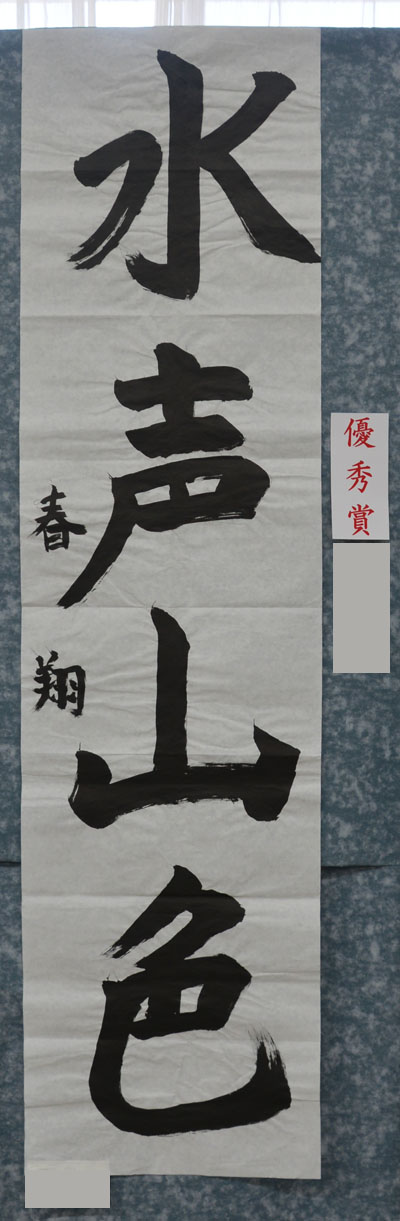 水声山色
春翔
優秀賞